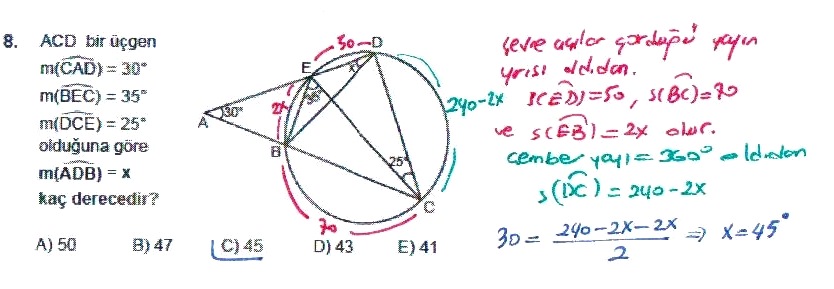 8. ACD bir üçgen
m(CAD) = 30°
m(BEC) = 35°
m(DCE) = 25°
olduğuna göre
m(ADB) = x
kaç derecedir?
A) 50 B) 47 C) 45 D) 43 E) 41
50
D
E
x
35°
2x
30°
A
B
25°
C
70
240-2x
çevre açılar gördüğü yayın
yrısı olddan.
s(ED)=50, s(BC)=70
ve s(EB)=2x olur.
çember yayı=360° olddan
s(DC)=240-2x
30 = 240-2x-2x / 2 ⇒ x=45°